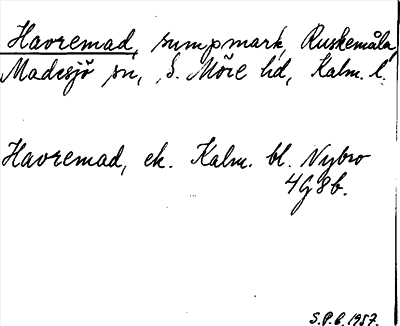 Havremad, sumpmark, Ruskemåla,
Madesjö sn, S. Möre hd, Kalm. l.
Havremad, ek. Kalm. bl. Nybro
4G8b.
S.P.B. 1957.